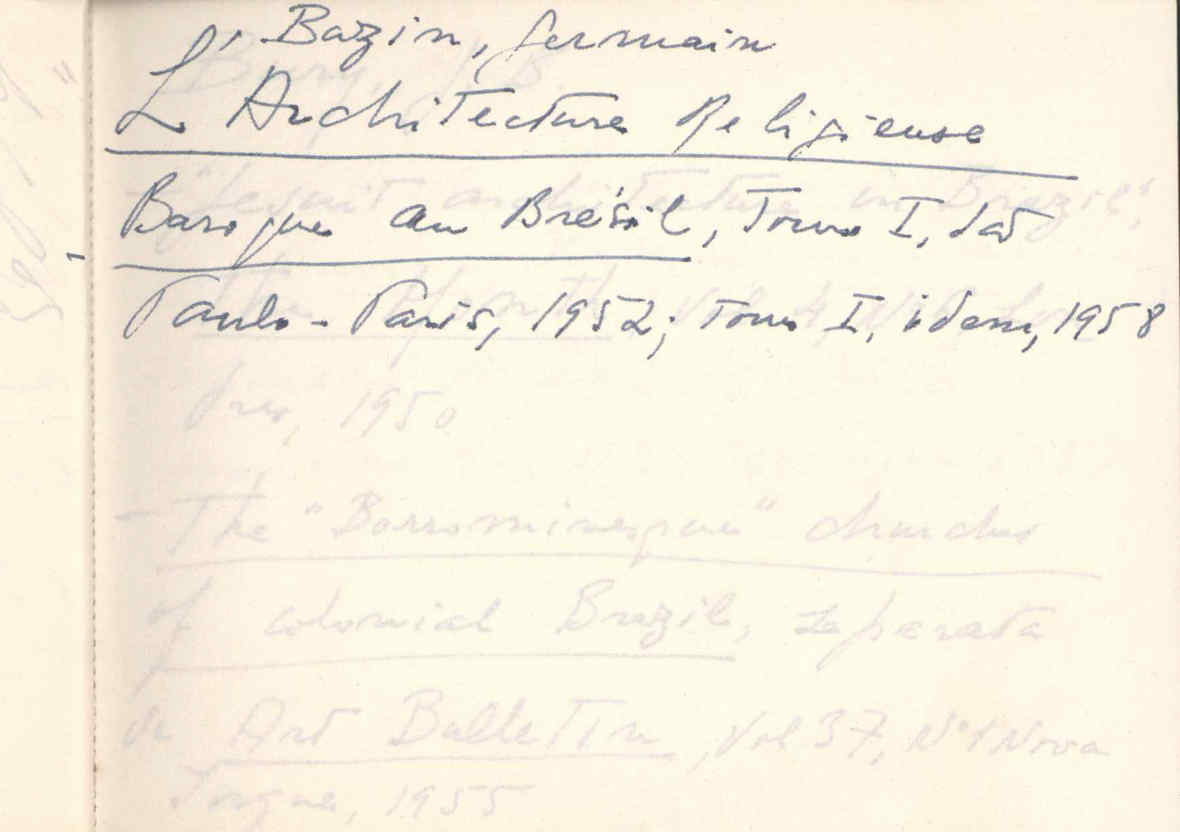 Bazin, Germain
L'Architecture Religieuse
Baroque au Brésil, Tomo I, São
Paulo - Paris, 1952; Tomo I, idem, 1958
Bury, J. B.
- "Jesuit architecture in Brazil",
The Month
1950
- The "Borrominesque" churches
of colonial Brazil, separata
de Art Bulletin, Vol 37, Nº 1 Nova
Iorque, 1955